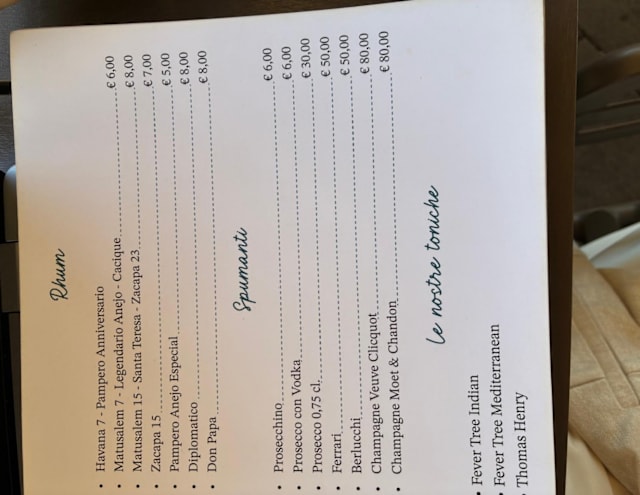 Rhum
• Havana 7 - Pampero Anniversario
• Matusalem 7 - Legendario Anejo - Cacique € 6,00
• Matusalem 15 - Santa Teresa - Zacapa 23 € 8,00
• Zacapa 15 € 7,00
• Pampero Anejo Especial € 5,00
• Diplomatico € 8,00
• Don Papa € 8,00
Spumanti
• Prosecchino € 6,00
• Prosecco con Vodka € 6,00
• Prosecco 0,75 cl. € 30,00
• Ferrari € 50,00
• Berlucchi € 50,00
• Champagne Veuve Clicquot € 80,00
• Champagne Moet & Chandon € 80,00
Le nostre toniche
• Fever Tree Indian
• Fever Tree Mediterranean
• Thomas Henry